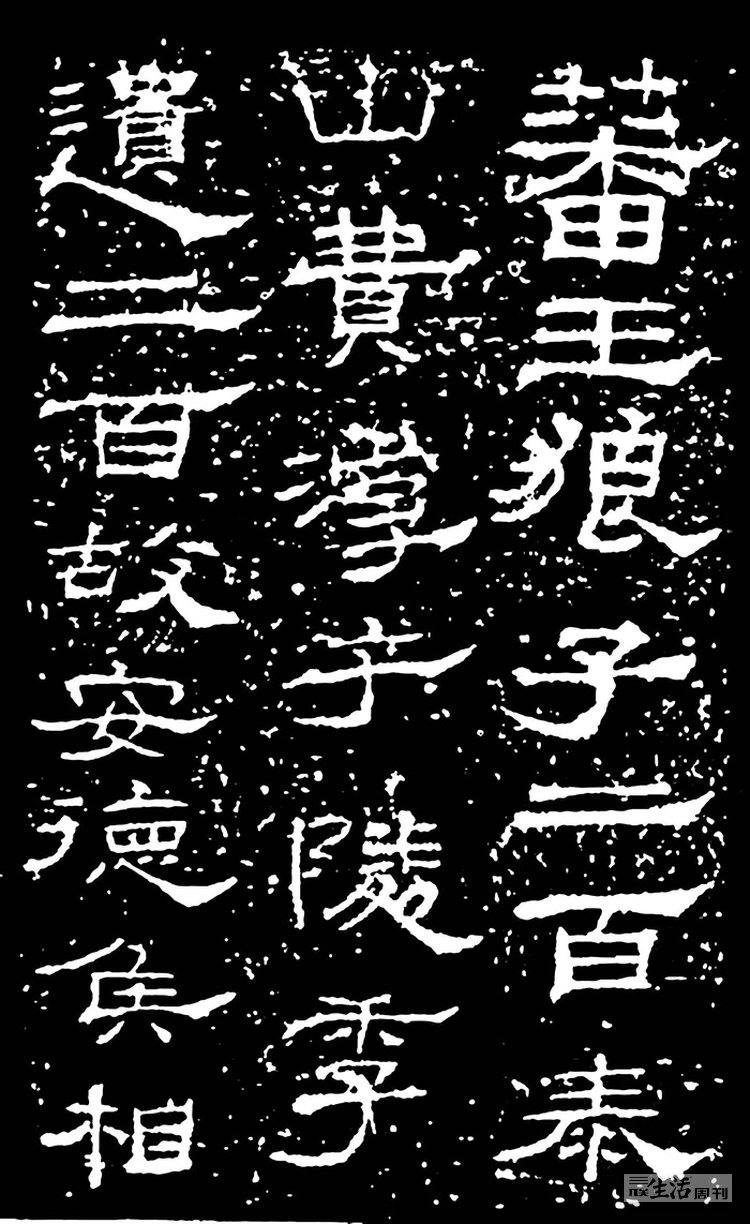 蕃王狼子二百泰
山費淳于隣季
遺二百故安德侯相
三联生活周刊